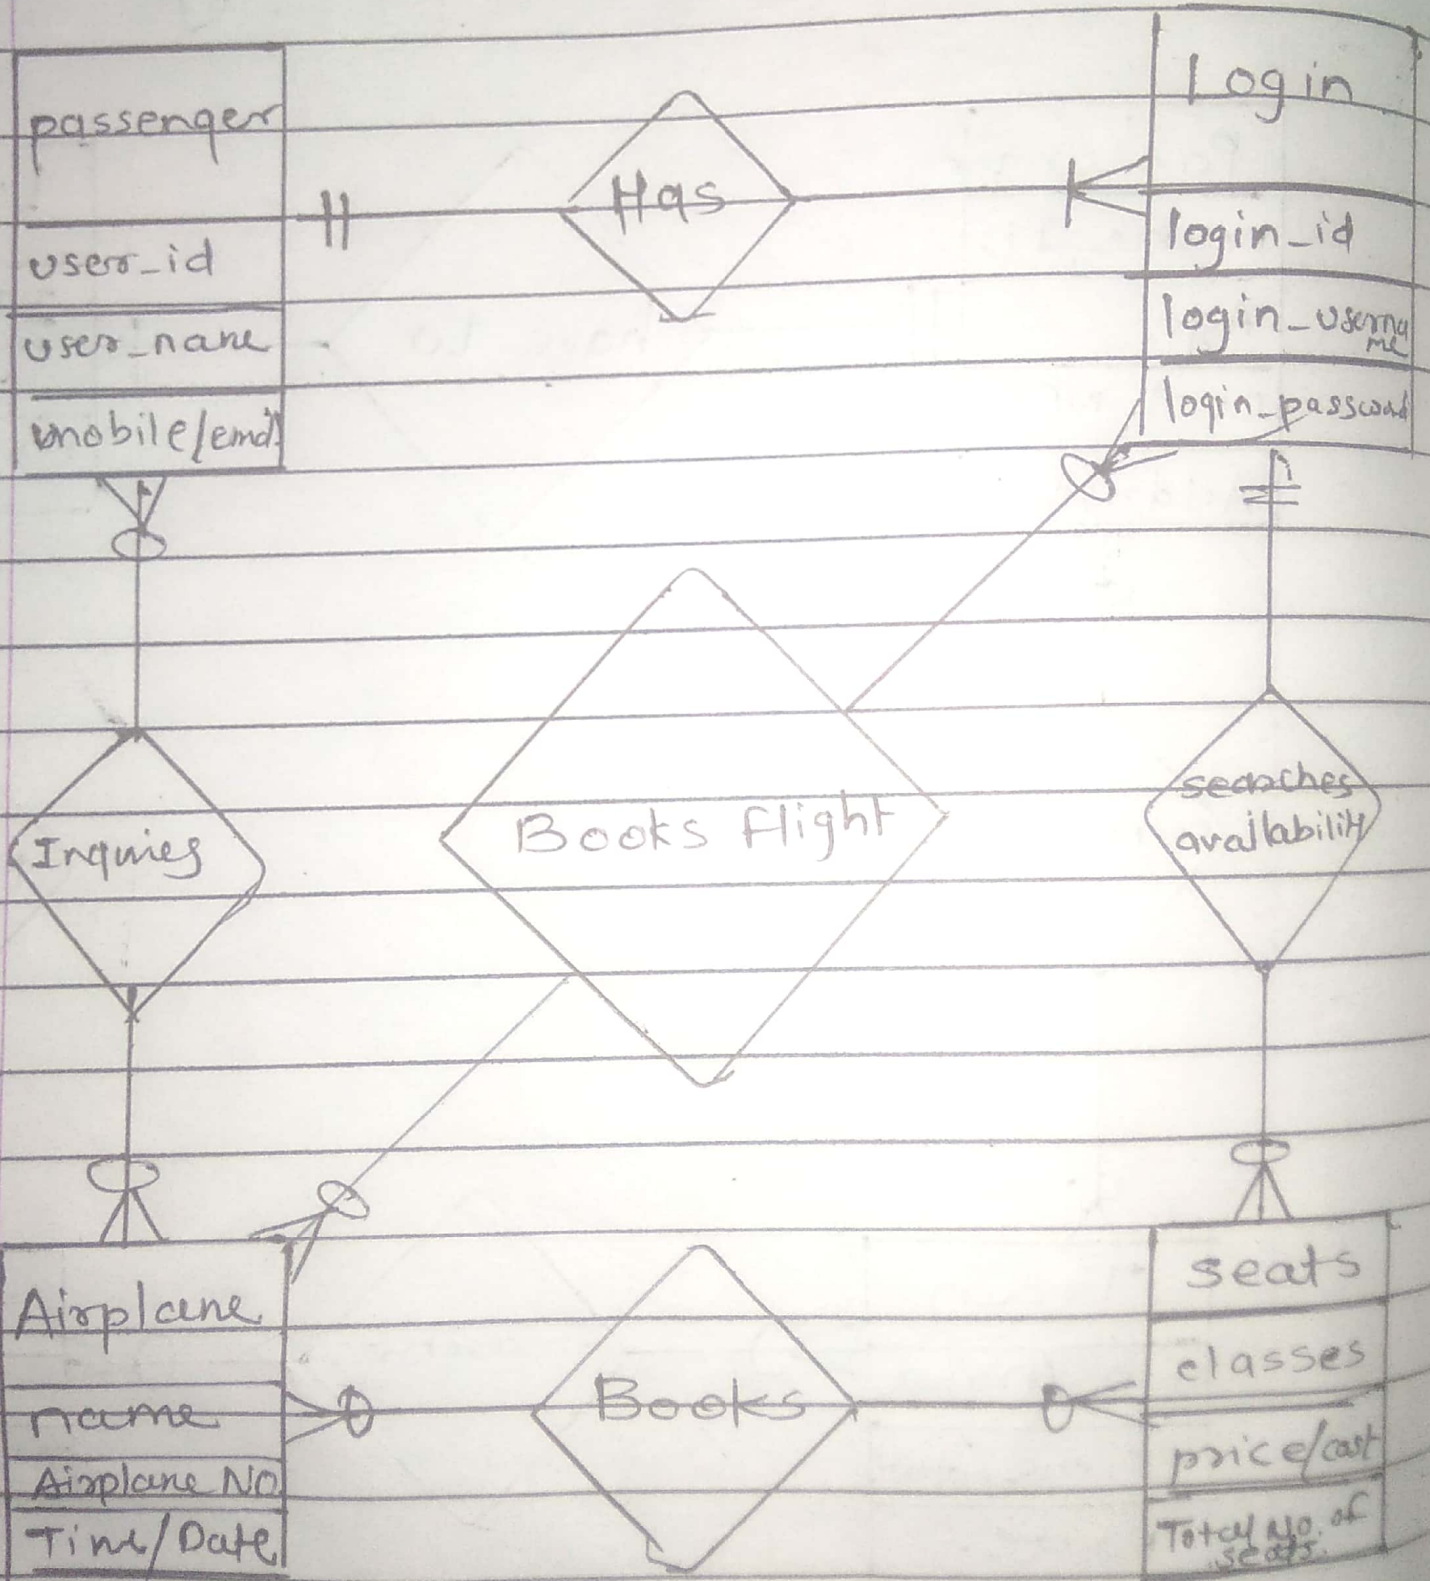 passenger
user_id
user_name
mobile/email
Has
Login
login_id
login_userna
me
login_password
Inquries
Books flight
searches
availability
Airplane
name
Airplane NO
Time/Date
Books
seats
classes
price/cost
Total No. of
seats.